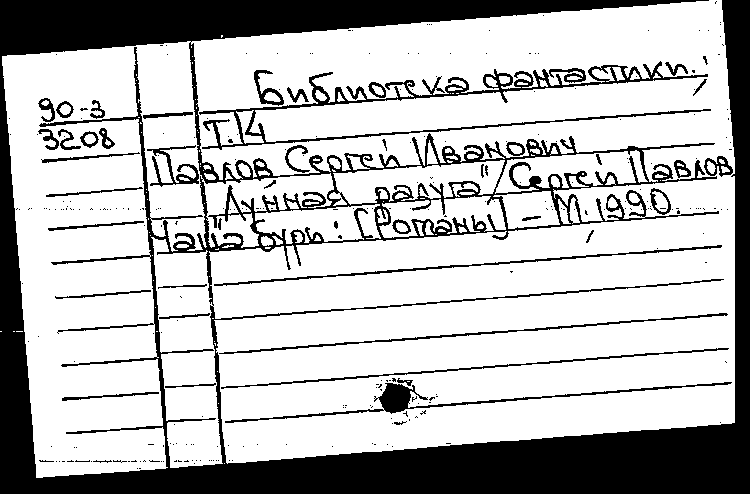 Библиотека фантастики.;
90-3
3208
Т.14
Павлов Сергей Иванович
"Лунная радуга"/Сергей Павлов
Чаша бурь: [Романы] – М., 1990.